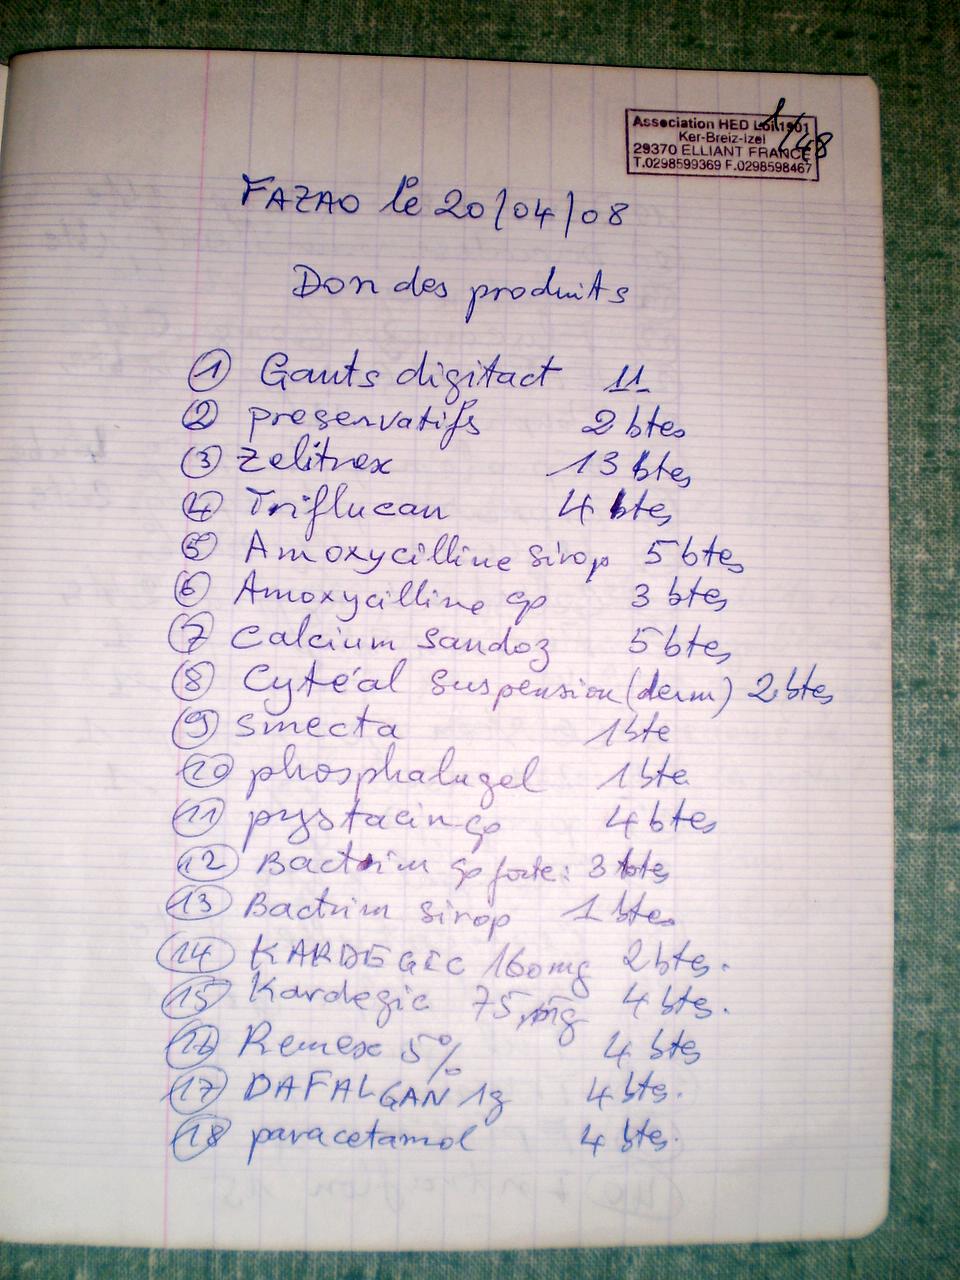 Association HED Loi 1901
Ker-Breiz-Izel
29370 ELLIANT FRANCE
T.0298599369 F.0298598467
1/48
FAZAO le 20/04/08
Don des produits
1 Gants digitact 11
2 preservatifs 2 btes
3 Zelitrex 13 btes
4 Triflucan 4 btes
5 Amoxycilline sirop 5 btes
6 Amoxycilline cp 3 btes
7 Calcium Sandoz 5 btes
8 Cytéal suspension (derm) 2 btes
9 Smecta 1 bte
10 phosphalugel 1 bte
11 pystacin cp 4 btes
12 Bactrim cp forte: 3 btes
13 Bactrim sirop 1 btes
14 KARDEGIC 160mg 2 btes.
15 Kardegic 75 mg 4 btes.
16 Remex 5% 4 btes
17 DAFALGAN 1g 4 btes.
18 paracetamol 4 btes.